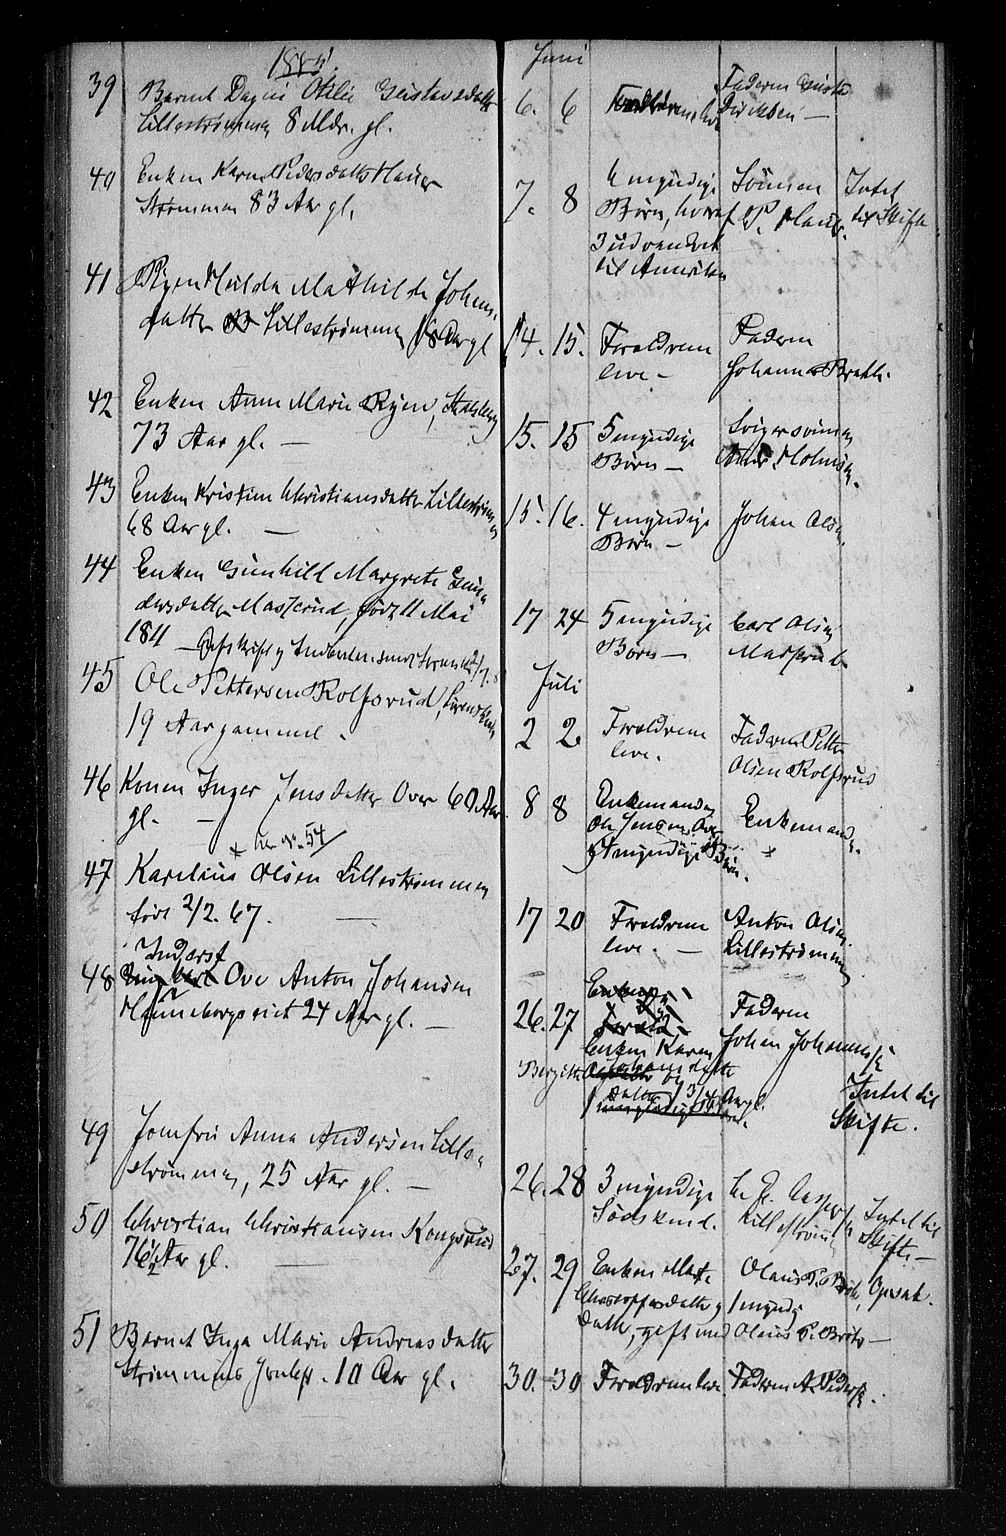 1885.
39 Barnet Dagni Otilie Gustavsdatter
Lillestrømmen 8 Mdr. gl.
40 Enken Karen Pedersdatter Hauer
Strømmen 83 Aar gl.
41 Pigen Hulda Mathilde Johans-
datter Lillestrømmen 18 Aar gl
42 Enken Anne Marie Ryen, Stalsberg
73 Aar gl. —
43 Enken Kristine Christiansdatter Lillestrømmen
68 Aar gl. —
44 Enken Gunhild Margrete Gun-
dersdatter Maserud, født 11 Mai
1811 —
45 Ole Pettersen Rolfsrud, Lørenskov
19 Aar gammel.
46 Konen Inger Jensdatter Over 60 Aar
gl. —
No. 54
47 Karelius Olsen Lillestrømmen
født 2/2. 67. —
Inderst
48 Ove Anton Johansen
24 Aar gl. —
49 Jomfru Anna Andersen Lille-
strømmen, 25 Aar gl. —
50 Christian Christiansen Kongsrud
76 1/2 Aar gl. —
51 Barnet Inga Marie Andreasdatter
Strømmens 10 Aar gl.
Juni
6. 6 Forældrene leve Faderen
— 
7. 8 6 myndige Sønnen Intet
Børn, hvoraf P. Hauer. til Skifte
3 udvandret
til Amerika
14. 15. Forældrene Faderen
leve — Johannes Brække.
15. 15 5 myndige Svigersønnen
Børn — Holmsen.
15. 16. 4 myndige Johan Olsen.
Børn —
17 24 5 myndige Carl Olsen
Børn — Maserud
Juli
2 2 Forældrene Faderen Petter
leve. Olsen Rolfsrud
8 8 Enkemanden Enkemanden.
Ole Jensen
myndige Børn.
17 20 Forældrene Anton Olsen
leve. — Lillestrømmen
26. 27 Faderen
Enken Karen Johan Johannessen
Birgitte Intet til
Skifte.
26. 28 3 myndige Intet til
Sødskend. Lillestrømmen Skifte —
27. 29 Enken Olaus P. Opsak.
Christoffersdatter og 1 myndig
Datter, gift med Olaus P. —
30. 30 Forældrene leve Faderen A. Pedersen.